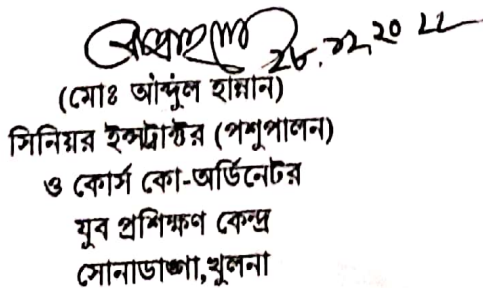 ২৮.১২.২০২২
(মোঃ আব্দুল হান্নান)
সিনিয়র ইন্সট্রাক্টর (পশুপালন)
ও কোর্স কো-অর্ডিনেটর
যুব প্রশিক্ষণ কেন্দ্র
সোনাডাঙ্গা,খুলনা